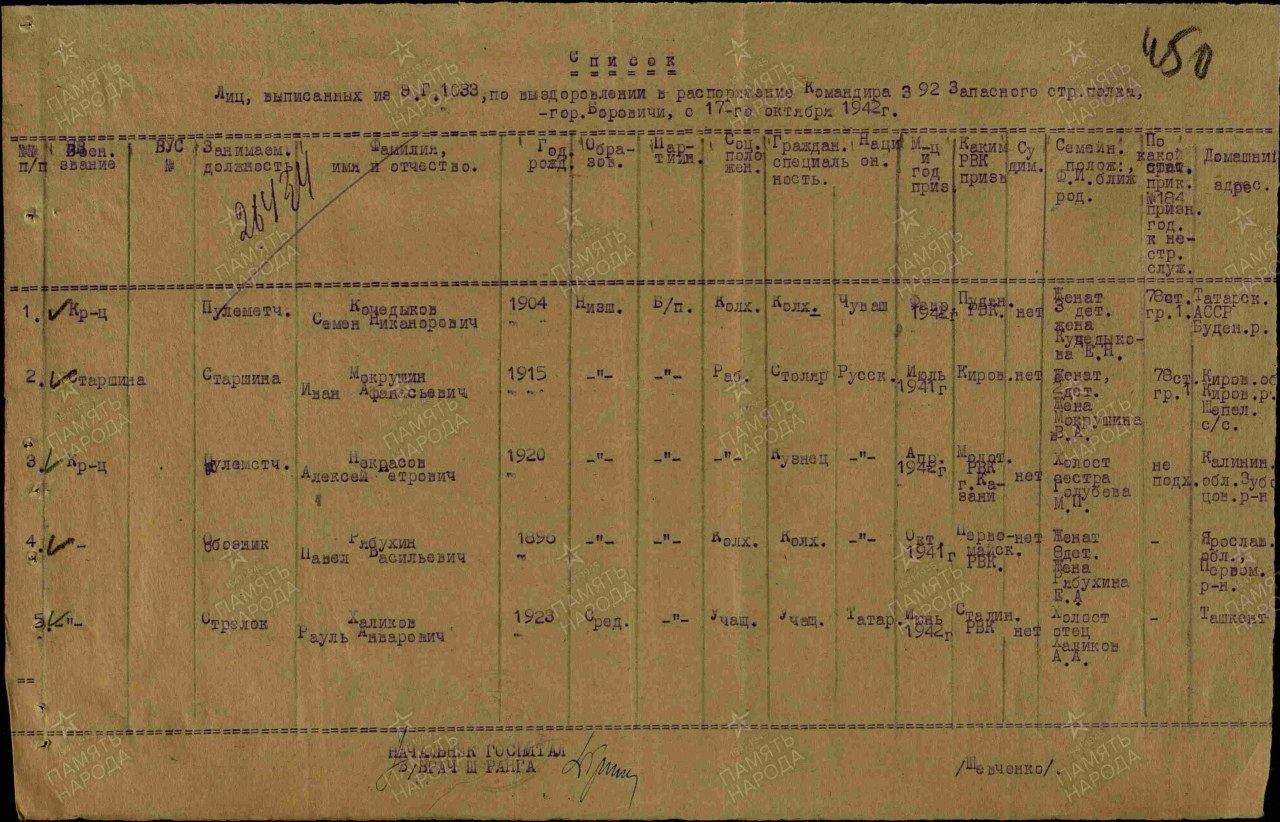 450
Список
Лиц, выписанных из Э.Г.1033, по выздоровлении в распоряжение Командира 3 92 Запасного стр.полка,
-гор.Боровичи, с 17-го октября 1942г.
№№ п/п Воен. звание ВУС № Занимаем. должность Фамилия, имя и отчество. Год рожд. Обра-зов. Пар-тийн. Соц. поло жен. Граждан. специаль ность. Наци он. М-ц и год приз. Каким РВК призв Су дим. Семейн. полож:, Ф.И.ближ род. По какой стат. прик. №184 призн. год. к не-стр. служ. Домашний адрес.
26434
1. Кр-ц Пулеметч. Кочедыков Семен Никанорович 1904 Низш. Б/п. Колх. Колх. Чуваш Февр. 1942г РВК. нет Женат 3 дет. жена Кучедыко-ва Е.Н. 78ст. гр.1. Татарск. АССР Буден.р.
2. Старшина Старшина Мокрушин Иван Афанасьевич 1915 -"- -"- Раб. Столяр Русск. Июль 1941г Киров. нет Женат, дет. Жена Мокрушина В.А. 78ст. гр.1 Киров.об Киров.р. Шепел. с/с.
3. Кр-ц Пулеметч. Некрасов Алексей Петрович 1920 -"- -"- -"- Кузнец -"- Апр. 1942г Молот. РВК г.Ка-зани нет Холост сестра Голубева М.П. не подх. Калинин. обл.Зубцов.р-н
4. -"- Обозник Рябухин Павел Васильевич 1898 -"- -"- Колх. Колх. -"- Окт 1941г Перво-майск. РВК. нет Женат 8дет. Жена Рябухина Е.А - Ярослав. обл., Первом. р-н.
5. -"- Стрелок Халиков Рауль Анварович 1923 Сред. -"- Учащ. Учащ. Татар. Июнь 1942г Сталин. РВК нет Холост отец Халиков А.А. - Ташкент
НАЧАЛЬНИК ГОСПИТАЛ
В/ВРАЧ Ш РАНГА /Шевченко/.
ПАМЯТЬ НАРОДА